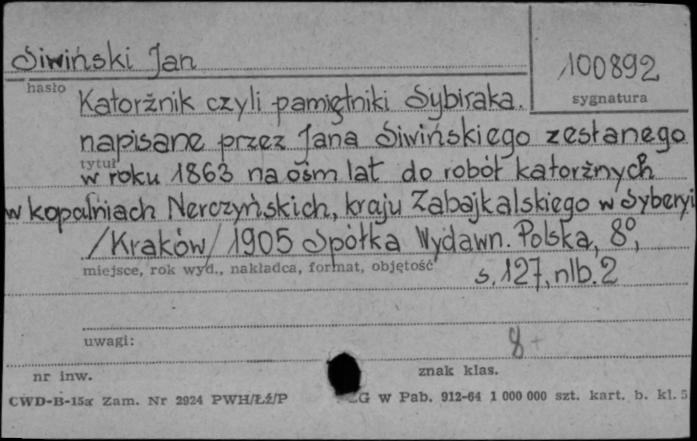 Siwiński Jan
100892
hasło
sygnatura
Katorżnik czyli pamiętniki Sybiraka.
napisane przez Jana Siwińskiego zesłanego
tytuł
w roku 1863 na ośm lat do robót katorżnych
w kopalniach Nerczyńskich, kraju Zabajkalskiego w Syberyi
/Kraków/ 1905 Spółka Wydawn. Polska, 8°,
miejsce, rok wyd., nakładca, format, objętość
s. 127, nlb. 2
uwagi:
8+
nr inw.
znak klas.
CWD-B-15a Zam. Nr 2924 PWH/Łź/P
ZG w Pab. 912-64 1 000 000 szt. kart. b. kl. 5